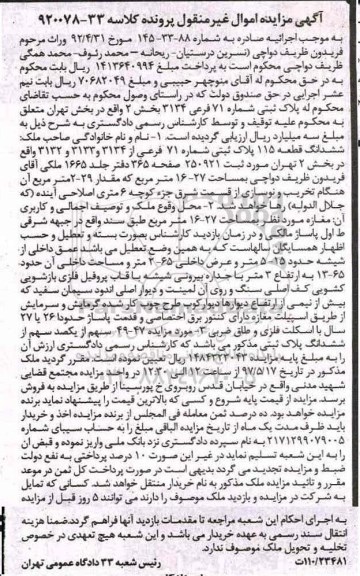 آگهی مزایده اموال غیرمنقول پرونده کلاسه ۳۳-۹۲۰۰۷۸
به موجب اجرائیه صادره به شماره ۸۸-۳۳-۱۴۵ مورخ ۹۲/۴/۳۱ وراث مرحوم
فریدون ظریف دواچی (نسرین درستیان- ریحانه – محمد رئوف- محمد همگی
ظریف دواچی) محکوم است به پرداخت مبلغ ۱۴۱۳۶۴۰۹۹۴ ریال بابت محکوم
به در حق محکوم له آقای منوچهر حبیبی و مبلغ ۷۰۶۸۲۰۴۹ ریال بابت نیم
عشر اجرایی در حق صندوق دولت که در راستای وصول محکوم به حسب تقاضای
محکوم له پلاک ثبتی شماره ۷۱ فرعی ۳۱۳۴ بخش ۲ واقع در بخش تهران متعلق
به محکوم علیه توقیف و توسط کارشناس رسمی دادگستری به شرح ذیل به
مبلغ سه میلیارد ریال ارزیابی گردیده است. ۱- نام و نام خانوادگی صاحب ملک:
ششدانگ قطعه ۱۱۵ پلاک ثبتی شماره ۷۱ فرعی از ۳۱۳۴ و ۳۱۳۳ و ۳۱۳۲ واقع
در بخش ۲ تهران مورد ثبت ۲۵۰۹۲۱ صفحه ۳۶۵ دفتر جلد ۱۶۶۵ ملکی آقای
فریدون ظریف دواچی بمساحت ۲۷-۱۶ متر مربع که مقدار ۲۹-۲متر مربع آن
هنگام تخریب و نوسازی از قسمت شرق جزء کوچه ۶ متری اصلاحی آینده (که
جلال الدوله) را خواهد بود. ۲- محل وقوع ملک و توصیف اجمالی و کاربری
آن: مغازه مورد نظر به مساحت ۲۷-۱۶ متر مربع طبق سند واقع در جبهه شرقی
ط اول پاساژ مالکی و در زمان بازدید کارشناس بصورت بسته و تعطیل و حسب
اظهار همسایگان سالهاست که به همین وضع تعطیل می باشد عمق داخلی از
شیشه حدود ۲۵-۵ متر و عرض داخلی ۶۵-۲ متر و مساحت داخلی آن حدود
۶۵-۱۳ به ارتفاع ۳ متر با جداره بیرونی شیشه با قاب پروفیل فلزی بازشویی
کشویی کف اصلی سنگ و روی آن لمینیت و دیوار اصلی اندود سیمان سفید که
بیش از نیمی از ارتفاع دیوارها دیوارکوب طرح چوب کار شده گرمایش و سرمایش
از طریق اسپیلت مغازه دارای کنتور برق اختصاصی و قدمت پاساژ حدودا ۲۶ یا ۲۷
سال با اسکلت فلزی و طاق ضربی ۳- مورد مزایده ۴۷-۴۹ سهم از یکصد سهم از
ششدانگ پلاک ثبتی مذکور می باشد که کارشناس رسمی دادگستری ارزش آن
را به مبلغ پایه مزایده ۱۴۸۴۳۲۳۰۴۳ ریال تعیین نموده است. مقرر گردید ملک
مذکور در تاریخ ۹۷/۵/۱۷ از ساعت ۱۲ الی ۱۲:۳۰ در واحد مزایده مجتمع قضایی
شهید مدنی واقع در خیابان قدس روبروی خ پورسینا از طریق مزایده به فروش
برسد. مزایده از قیمت پایه شروع و کسی که بالاترین قیمت را پیشنهاد نماید برنده
مزایده خواهد بود. ده درصد ثمن معامله فی المجلس از برنده مزایده اخذ و خریدار
باید ظرف مدت یک ماه از تاریخ مزایده الباقی مبلغ را به حساب سیبای شماره
۲۱۷۱۲۹۹۰۷۹۰۰۵ به نام سپرده دادگستری نزد بانک ملی واریز نموده و قبض آن
را به این شعبه تسلیم نماید در غیر این صورت ۱۰ درصد پرداختی به نفع دولت
ضبط و مزایده تجدید می گردد بدیهی است در صورت پرداخت کل ثمن در موعد
مقرر و تائید مزایده ملک مذکور به نام خریدار منتقل خواهد شد. کسانی که تمایل
به شرکت در مزایده و بازدید ملک موصوف را دارند می توانند ۵ روز قبل از مزایده
به اجرای احکام این شعبه مراجعه تا مقدمات بازدید آنها فراهم گردد ضمنا هزینه
انتقال سند رسمی به عهده خریدار می باشد و این شعبه هیچ تعهدی در خصوص
تخلیه و تحویل ملک موصوف ندارد.
۱۱۰/۲۳۴۸۱ت رئیس شعبه ۳۳ دادگاه عمومی تهران